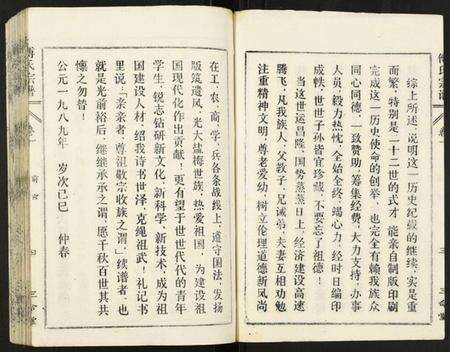 综上所述，说明这一历史纪载的继续，实是重
而繁，特别是二十二世的式才，能亲自制版印刷
完成这一历史使命的创举，也完全有赖我族众
同心同德，一致赞助，筹集经费，大力支持，办事
人员，毅力热忱，全始全终，竭心力，经时日编印
成帙，世世子孙皆宜珍藏，不要忘了祖德！
当这世运昌隆，国势蒸蒸日上，经济建设高速
腾飞，凡我族人，父教子，兄诫弟，夫妻互相劝勉
注重精神文明，尊老爱幼，树立伦理道德新风尚
在工、农、商、学、兵各条战线上，遵守国法，发扬
版筑遗风，光大盐梅世族，热爱祖国，为建设祖
国现代化作出贡献！更有望于世世代代的青年
学生，锐志钻研新文化，新科学，新技术，成为祖
国建设人材，绍我诗书世泽，克绳祖武！礼记书
里说：「亲亲者，尊祖敬宗收族之谓」，续谱者，也
就是光前裕后，继继承承之谓，愿千秋百世其共
懔之勿替！
公元一九八九年 岁次己巳 仲春
傅氏宗谱
卷